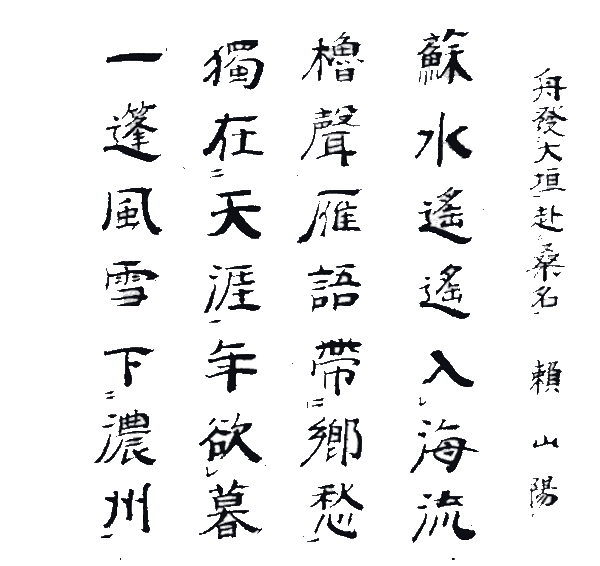 舟發大垣赴桑名 賴山陽
蘇水遙遙入海流
櫓聲雁語帶鄉愁
獨在天涯年欲暮
一篷風雪下濃州